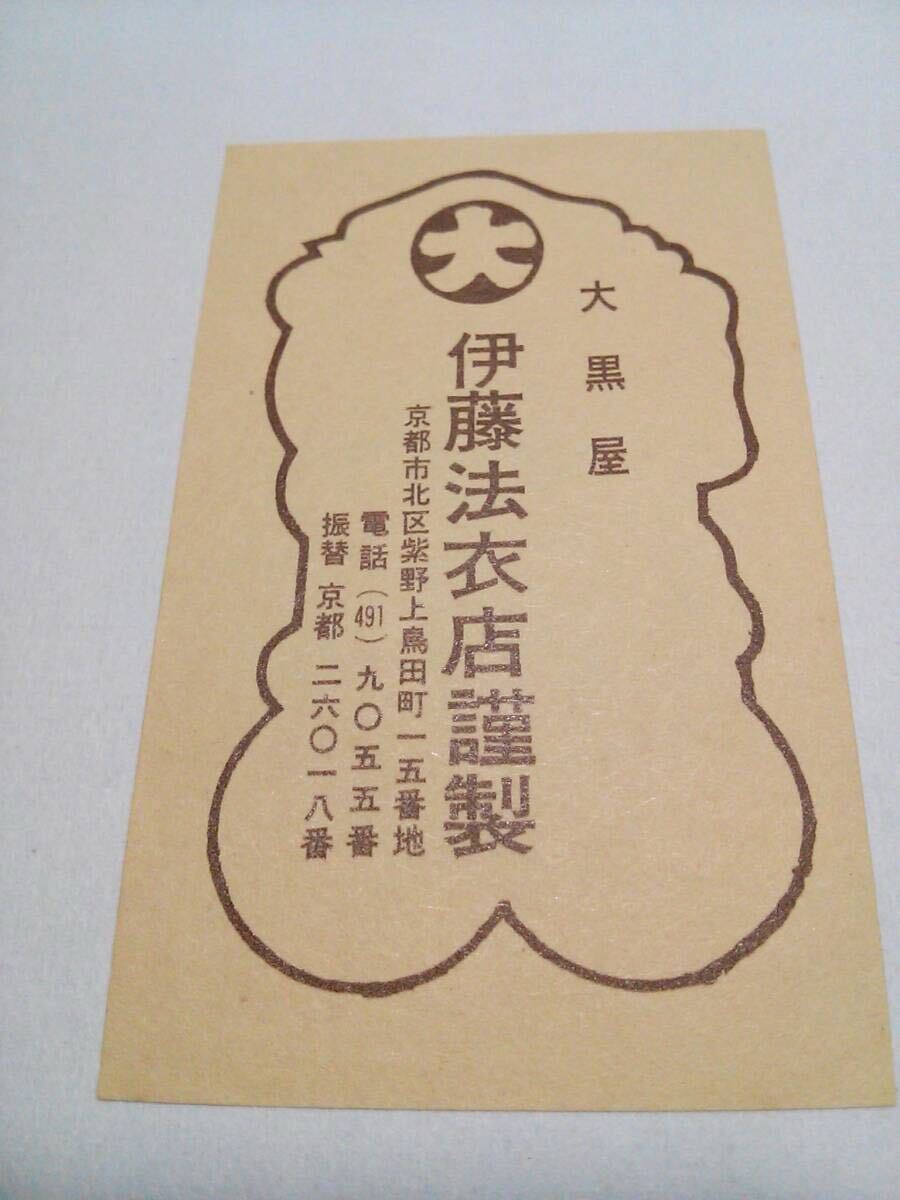 大
大黒屋
伊藤法衣店謹製
京都市北区紫野上鳥田町一五番地
電話(491)九〇五五番
振替 京都 二六〇一八番